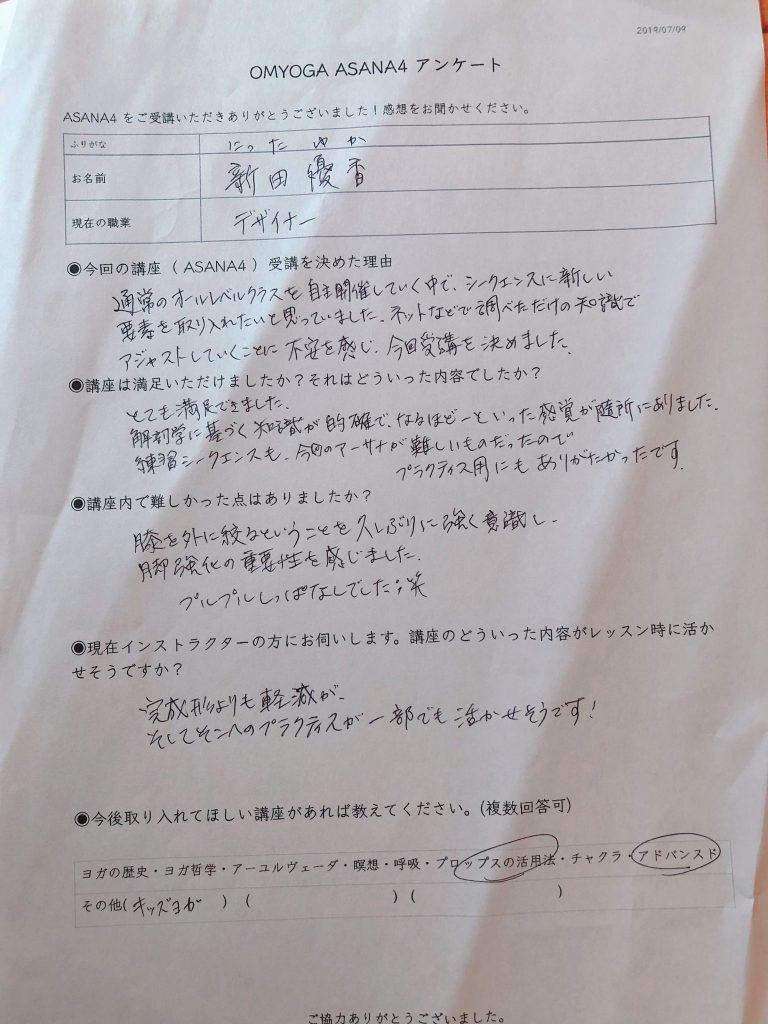 2019/07/09
OMYOGA ASANA4 アンケート
ASANA4 をご受講いただきありがとうございました！感想をお聞かせください。
ふりがな にった ゆか
お名前 新田優香
現在の職業 デザイナー
◉今回の講座（ASANA4）受講を決めた理由
通常のオールレベルクラスを自主開催していく中で、シークエンスに新しい
要素を取り入れたいと思っていました。ネットなどで調べただけの知識で
アジャストしていくことに不安を感じ、今回受講を決めました。
◉講座は満足いただけましたか？それはどういった内容でしたか？
とても満足できました。
解剖学に基づく知識が的確で、なるほどーといった感覚が随所にありました。
練習シークエンスも、今回のアーサナが難しいものだったので
プラクティス用にもありがたかったです。
◉講座内で難しかった点はありましたか？
膝を外に絞るということを久しぶりに強く意識し、
脚強化の重要性を感じました。
プルプルしっぱなしでした；笑
◉現在インストラクターの方にお伺いします。講座のどういった内容がレッスン時に活か
せそうですか？
完成形よりも軽減が、
そしてそこへのプラクティスが一部でも活かせそうです！
◉今後取り入れてほしい講座があれば教えてください。(複数回答可)
ヨガの歴史・ヨガ哲学・アーユルヴェーダ・瞑想・呼吸・プロップスの活用法・チャクラ・アドバンスド
その他( キッズヨガ ) ( ) ( )
ご協力ありがとうございました。